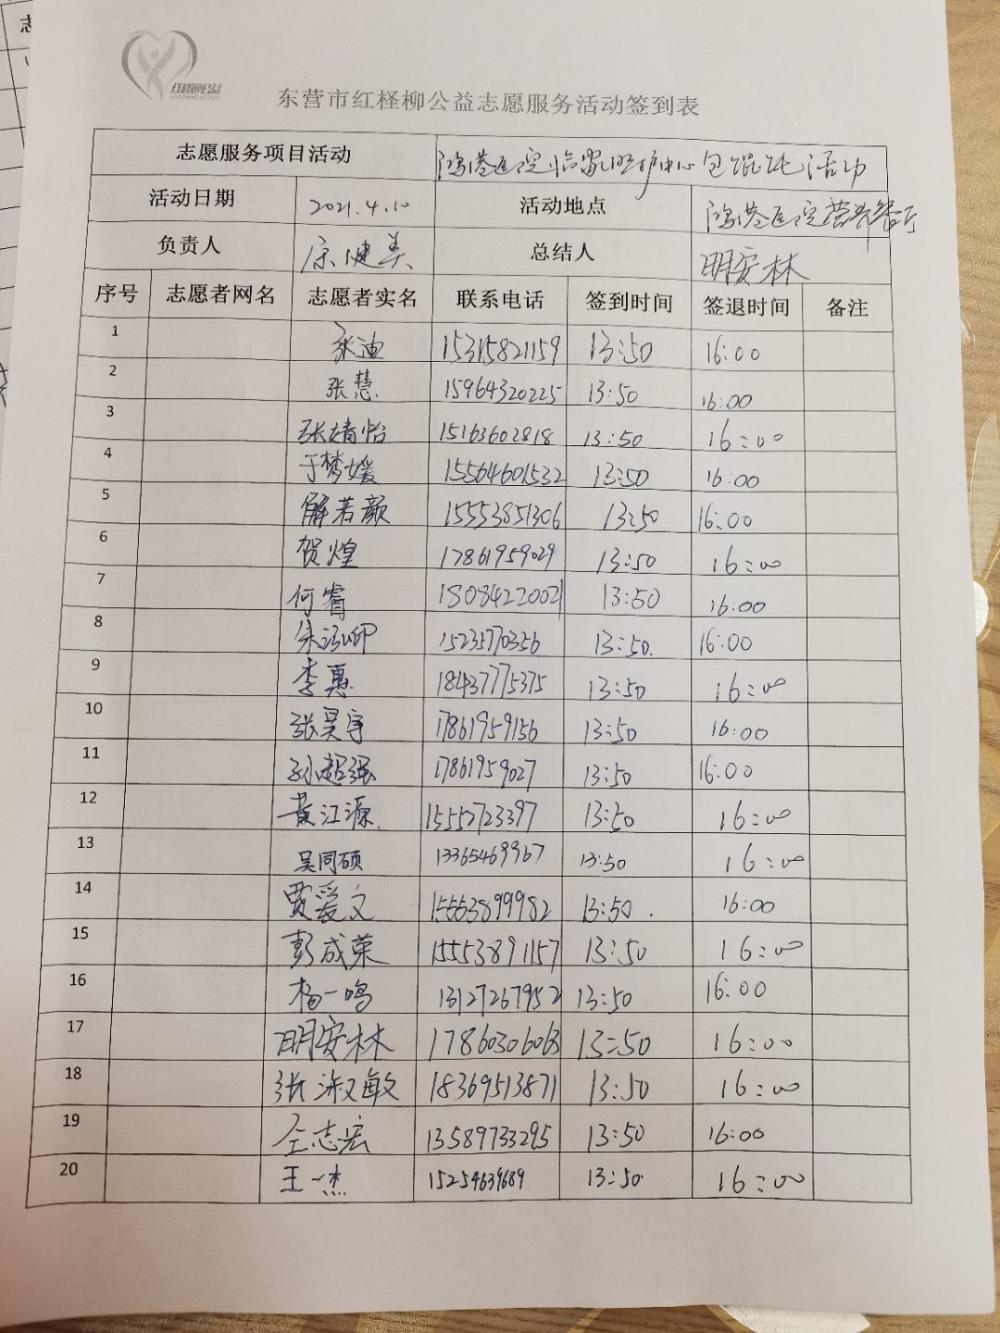 红柽柳公益
东营市红柽柳公益志愿服务活动签到表
志愿服务项目活动 鸿港医院临家呵护中心包馄饨活动
活动日期 2021.4.10 活动地点 鸿港医院营养餐厅
负责人 健美 总结人 明安林
序号 志愿者网名 志愿者实名 联系电话 签到时间 签退时间 备注
1 张迪 15315821159 13:50 16:00
2 张慧 15964320225 13:50 16:00
3 张婧怡 15163602818 13:50 16:00
4 于梦媛 15564601532 13:50 16:00
5 解若颜 15553851306 13:50 16:00
6 贺煌 17861959029 13:50 16:00
7 何睿 18084220021 13:50 16:00
8 15235770356 13:50. 16:00
9 李惠 18437775375 13:50 16:00
10 张昊宇 17861959156 13:50 16:00
11 孙超强 17861959027 13:50 16:00
12 黄江源 15552723397 13:50 16:00
13 吴同硕 13365469967 13:50 16:00
14 贾爱文 15553899982 13:50. 16:00
15 彭成荣 15553891157 13:50 16:00
16 杨一鸣 13127267952 13:50 16:00
17 明安林 17860306063 13:50 16:00
18 张淑敏 18369513871 13:50 16:00
19 仝志宏 13589733295 13:50 16:00
20 王一杰 15254639689 13:50 16:00